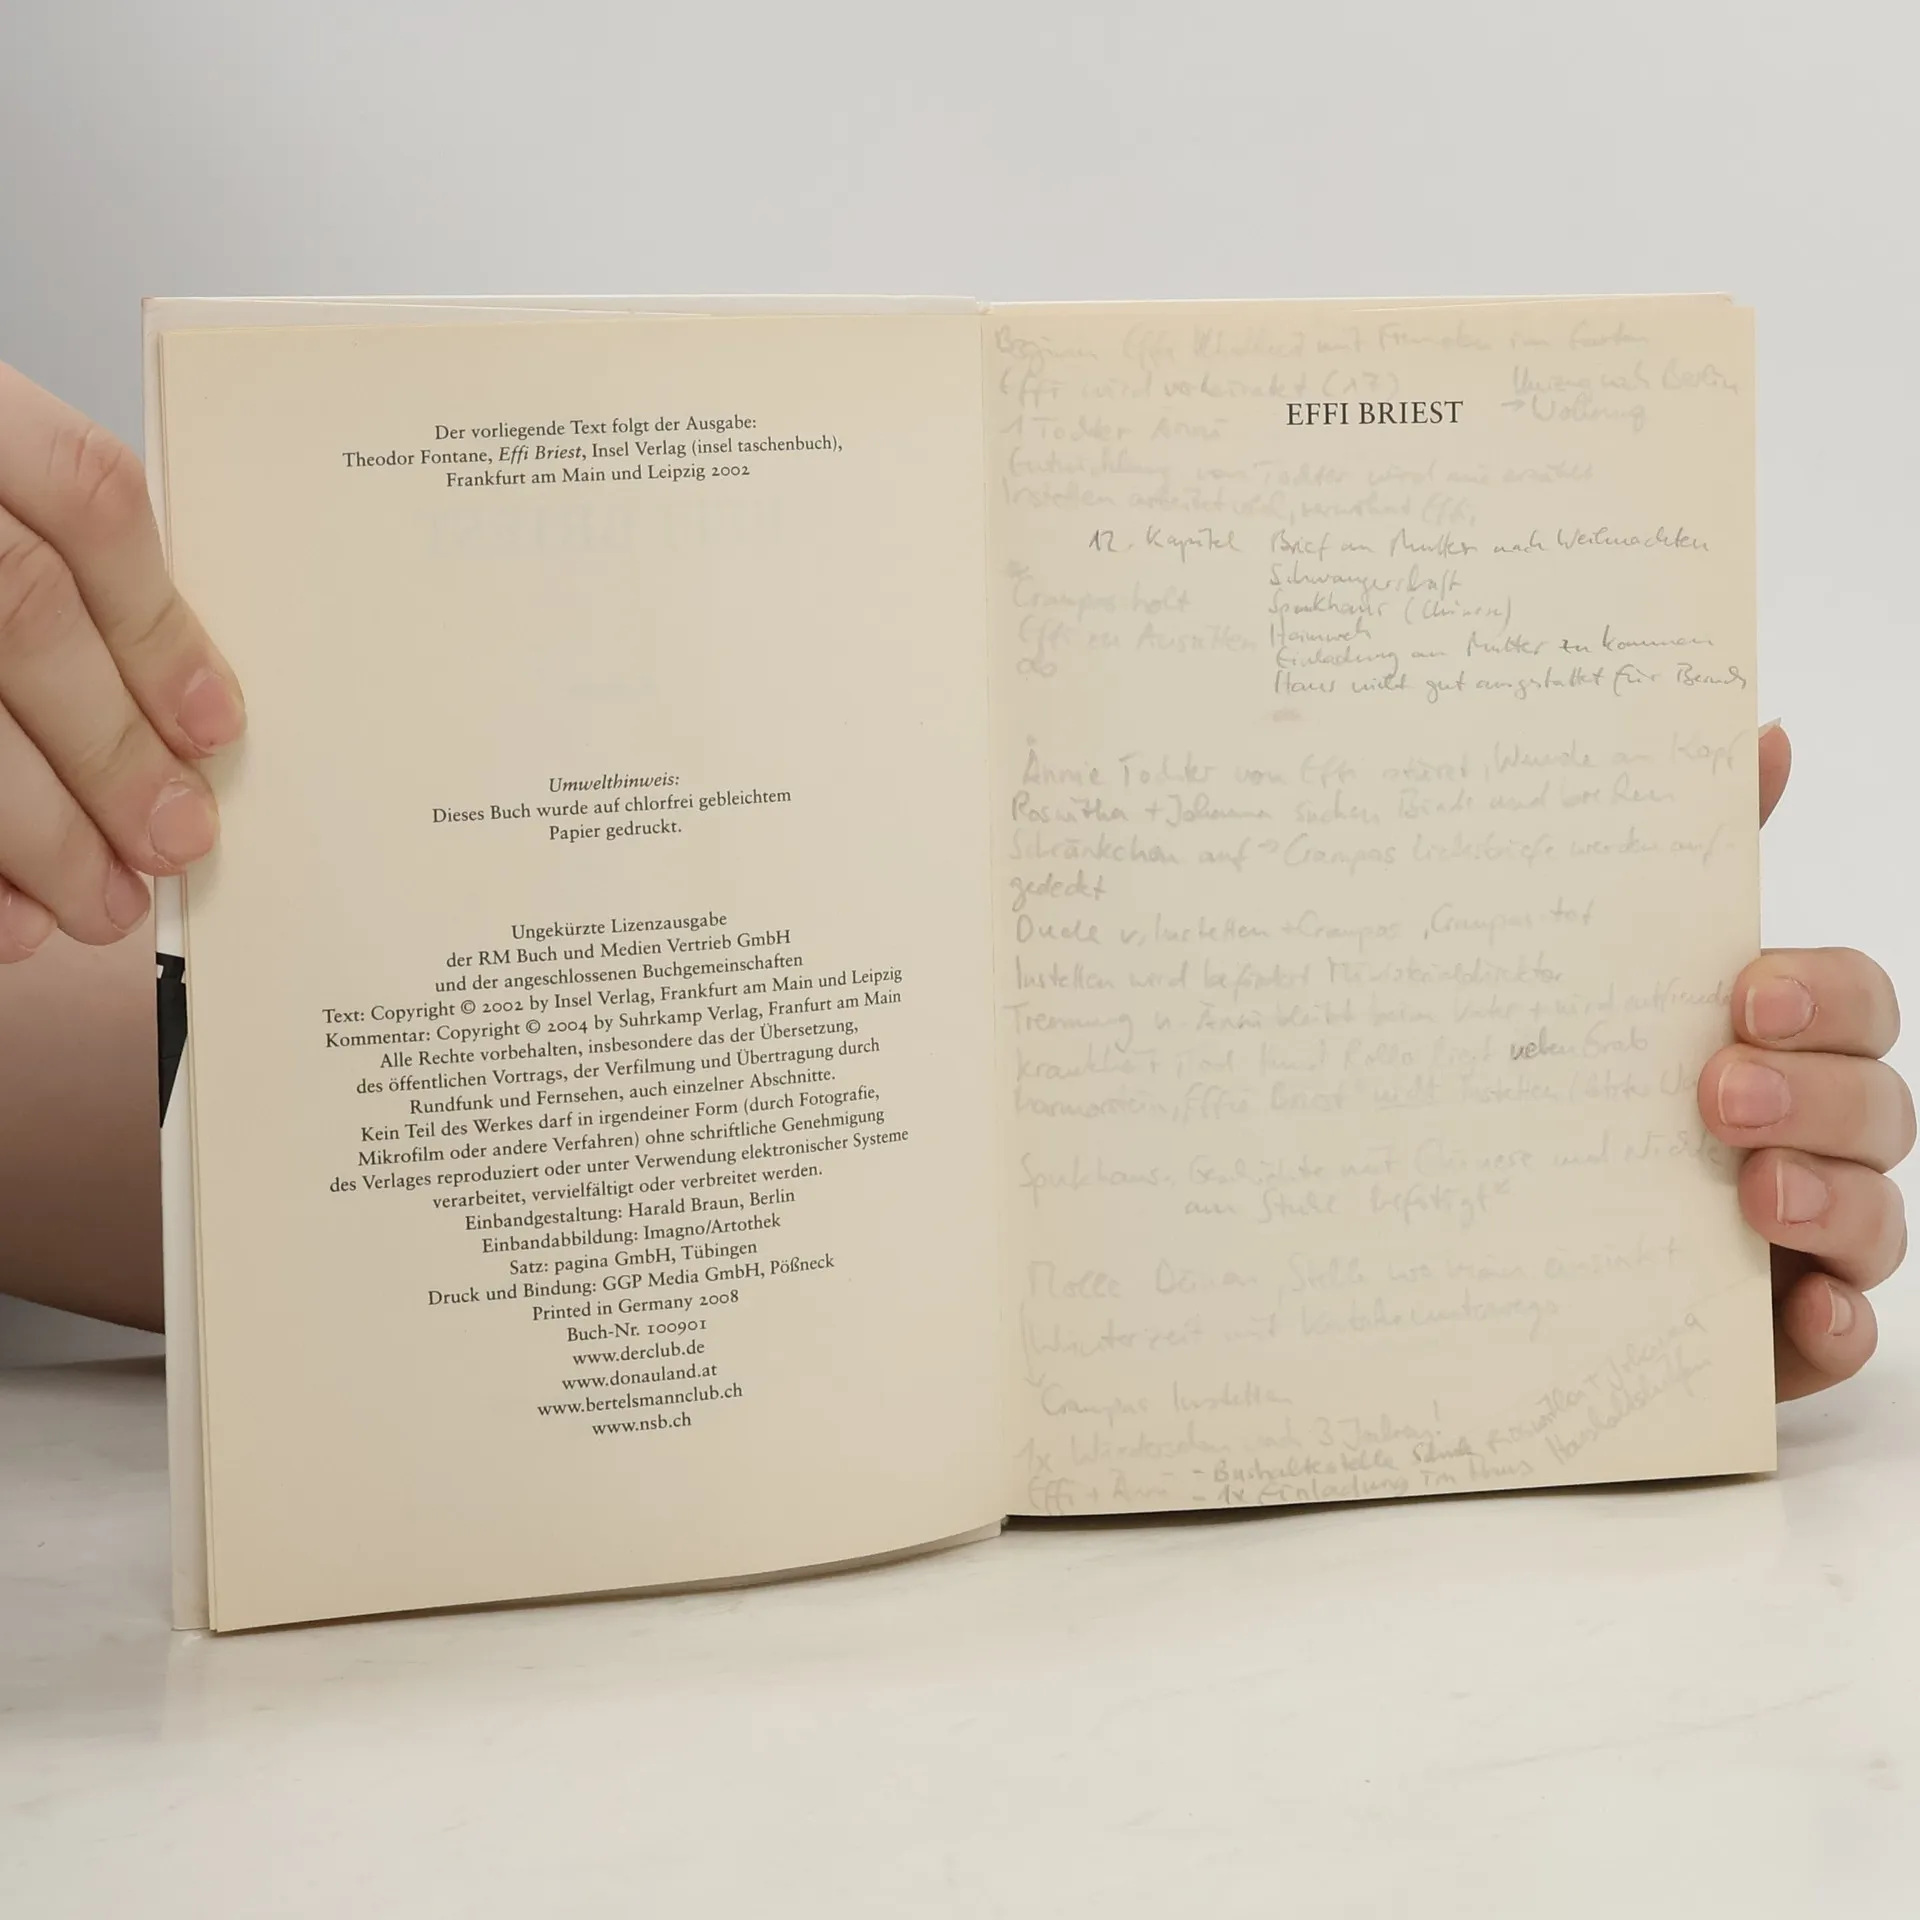 Der vorliegende Text folgt der Ausgabe:
Theodor Fontane, Effi Briest, Insel Verlag (insel taschenbuch),
Frankfurt am Main und Leipzig 2002
Umwelthinweis:
Dieses Buch wurde auf chlorfrei gebleichtem
Papier gedruckt.
Ungekürzte Lizenzausgabe
der RM Buch und Medien Vertrieb GmbH
und der angeschlossenen Buchgemeinschaften
Text: Copyright © 2002 by Insel Verlag, Frankfurt am Main und Leipzig
Kommentar: Copyright © 2004 by Suhrkamp Verlag, Franfurt am Main
Alle Rechte vorbehalten, insbesondere das der Übersetzung,
des öffentlichen Vortrags, der Verfilmung und Übertragung durch
Rundfunk und Fernsehen, auch einzelner Abschnitte.
Kein Teil des Werkes darf in irgendeiner Form (durch Fotografie,
Mikrofilm oder andere Verfahren) ohne schriftliche Genehmigung
des Verlages reproduziert oder unter Verwendung elektronischer Systeme
verarbeitet, vervielfältigt oder verbreitet werden.
Einbandgestaltung: Harald Braun, Berlin
Einbandabbildung: Imagno/Artothek
Satz: pagina GmbH, Tübingen
Druck und Bindung: GGP Media GmbH, Pößneck
Printed in Germany 2008
Buch-Nr. 100901
www.derclub.de
www.donauland.at
www.bertelsmannclub.ch
www.nsb.ch
Beginn Effi mit im Garten
Effi wird verheiratet (17)
Umzug nach Berlin
→ Wohnung
EFFI BRIEST
1 Tochter Anni
Entwicklung von Tochter wird nie erzählt
Instetten arbeitet viel, Effi,
12. Kapitel Brief an Mutter nach Weihnachten
Schwangerschaft
Spukhaus (Chinese)
Heimweh
Einladung an Mutter zu kommen
Haus nicht gut ausgestattet für Besuch
Crampas holt
Effi zu Ausritten
ab
Annie Tochter von Effi stürzt, Wunde am Kopf
Roswitha + Johanna suchen Binde und brechen
Schränkchen auf → Crampas Liebesbriefe werden auf-
gedeckt
Duell v. Instetten + Crampas, Crampas tot
Instetten wird befördert Ministerialdirektor
Trennung u. Anni bleibt beim Vater + wird entfremdet
Tod Hund Rollo liegt neben Grab
Effi Briest Instetten
Spukhaus, Geschichte mit Chinese und Nichte
am Stuhl befestigt
Stelle wo man einsinkt
Winterzeit mit unterwegs
Crampas Instetten
1x Wiedersehen nach 3 Jahren!
Effi + Anni - Bushaltestelle
- 1x Einladung im Haus
Roswitha + Johanna
Haushaltshilfen